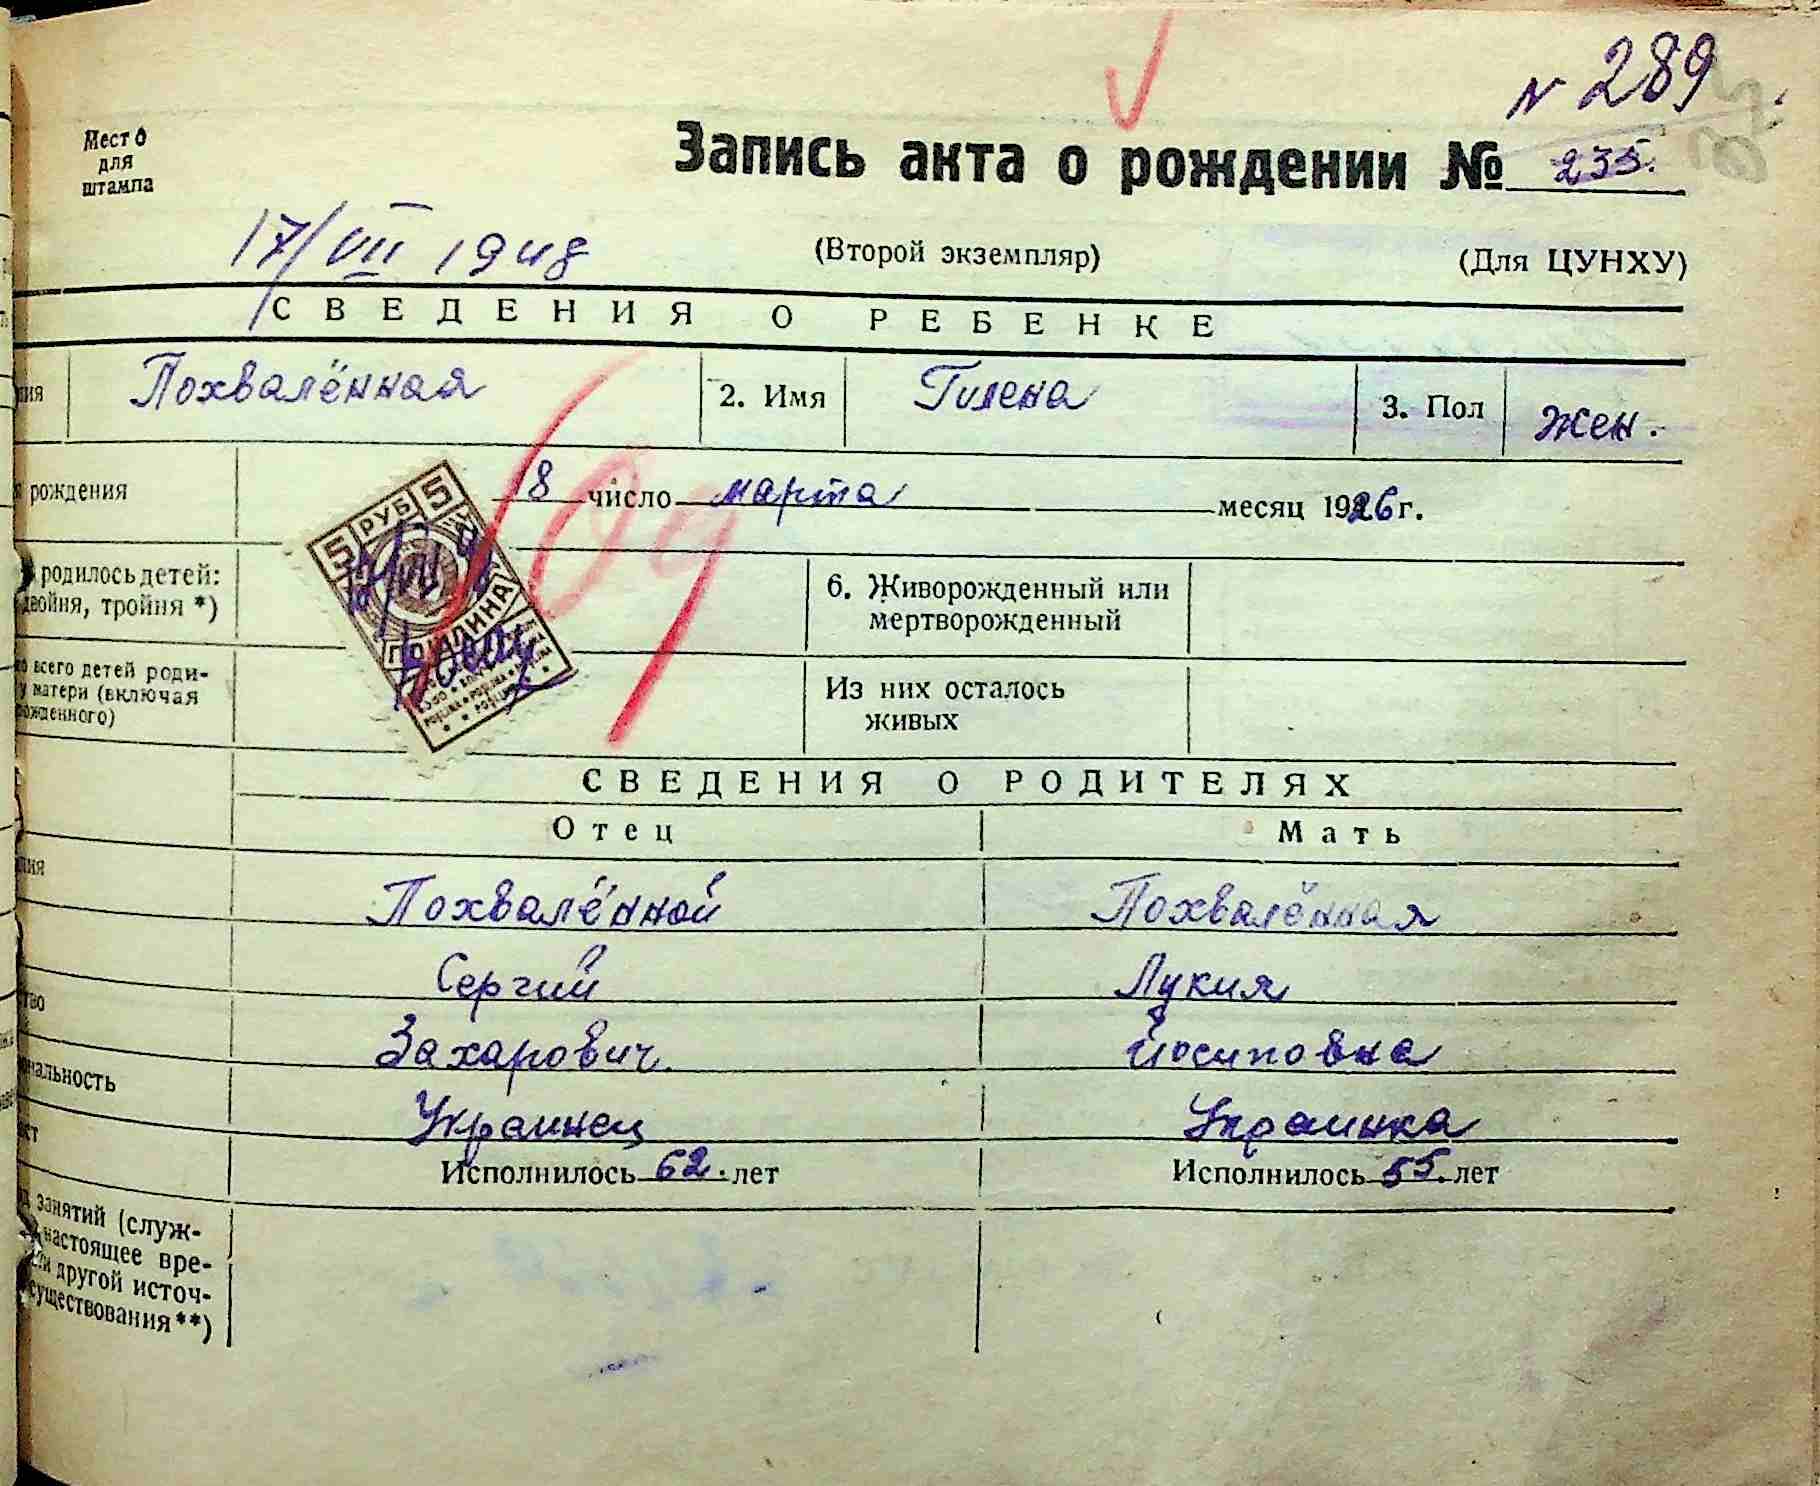 N 289
Место
для
штампа
Запись акта о рождении № 235.
17/VII 1948
(Второй экземпляр) (Для ЦУНХУ)
СВЕДЕНИЯ О РЕБЕНКЕ
ия Похвалённая 2. Имя Гилена 3. Пол жен.
рождения 8 число марта месяц 1926 г.
5 РУБ 5
родилось детей:
двойня, тройня *)
6. Живорожденный или
мертворожденный
всего детей роди-
у матери (включая
рожденного)
Из них осталось
живых
СВЕДЕНИЯ О РОДИТЕЛЯХ
Отец Мать
Похвалённой Похвалённая
Сергий Лукия
тво Захарович Йосиповна
нальность Украинец Украинка
ст Исполнилось 62. лет Исполнилось 55. лет
занятий (служ-
настоящее вре-
или другой источ-
существования **)